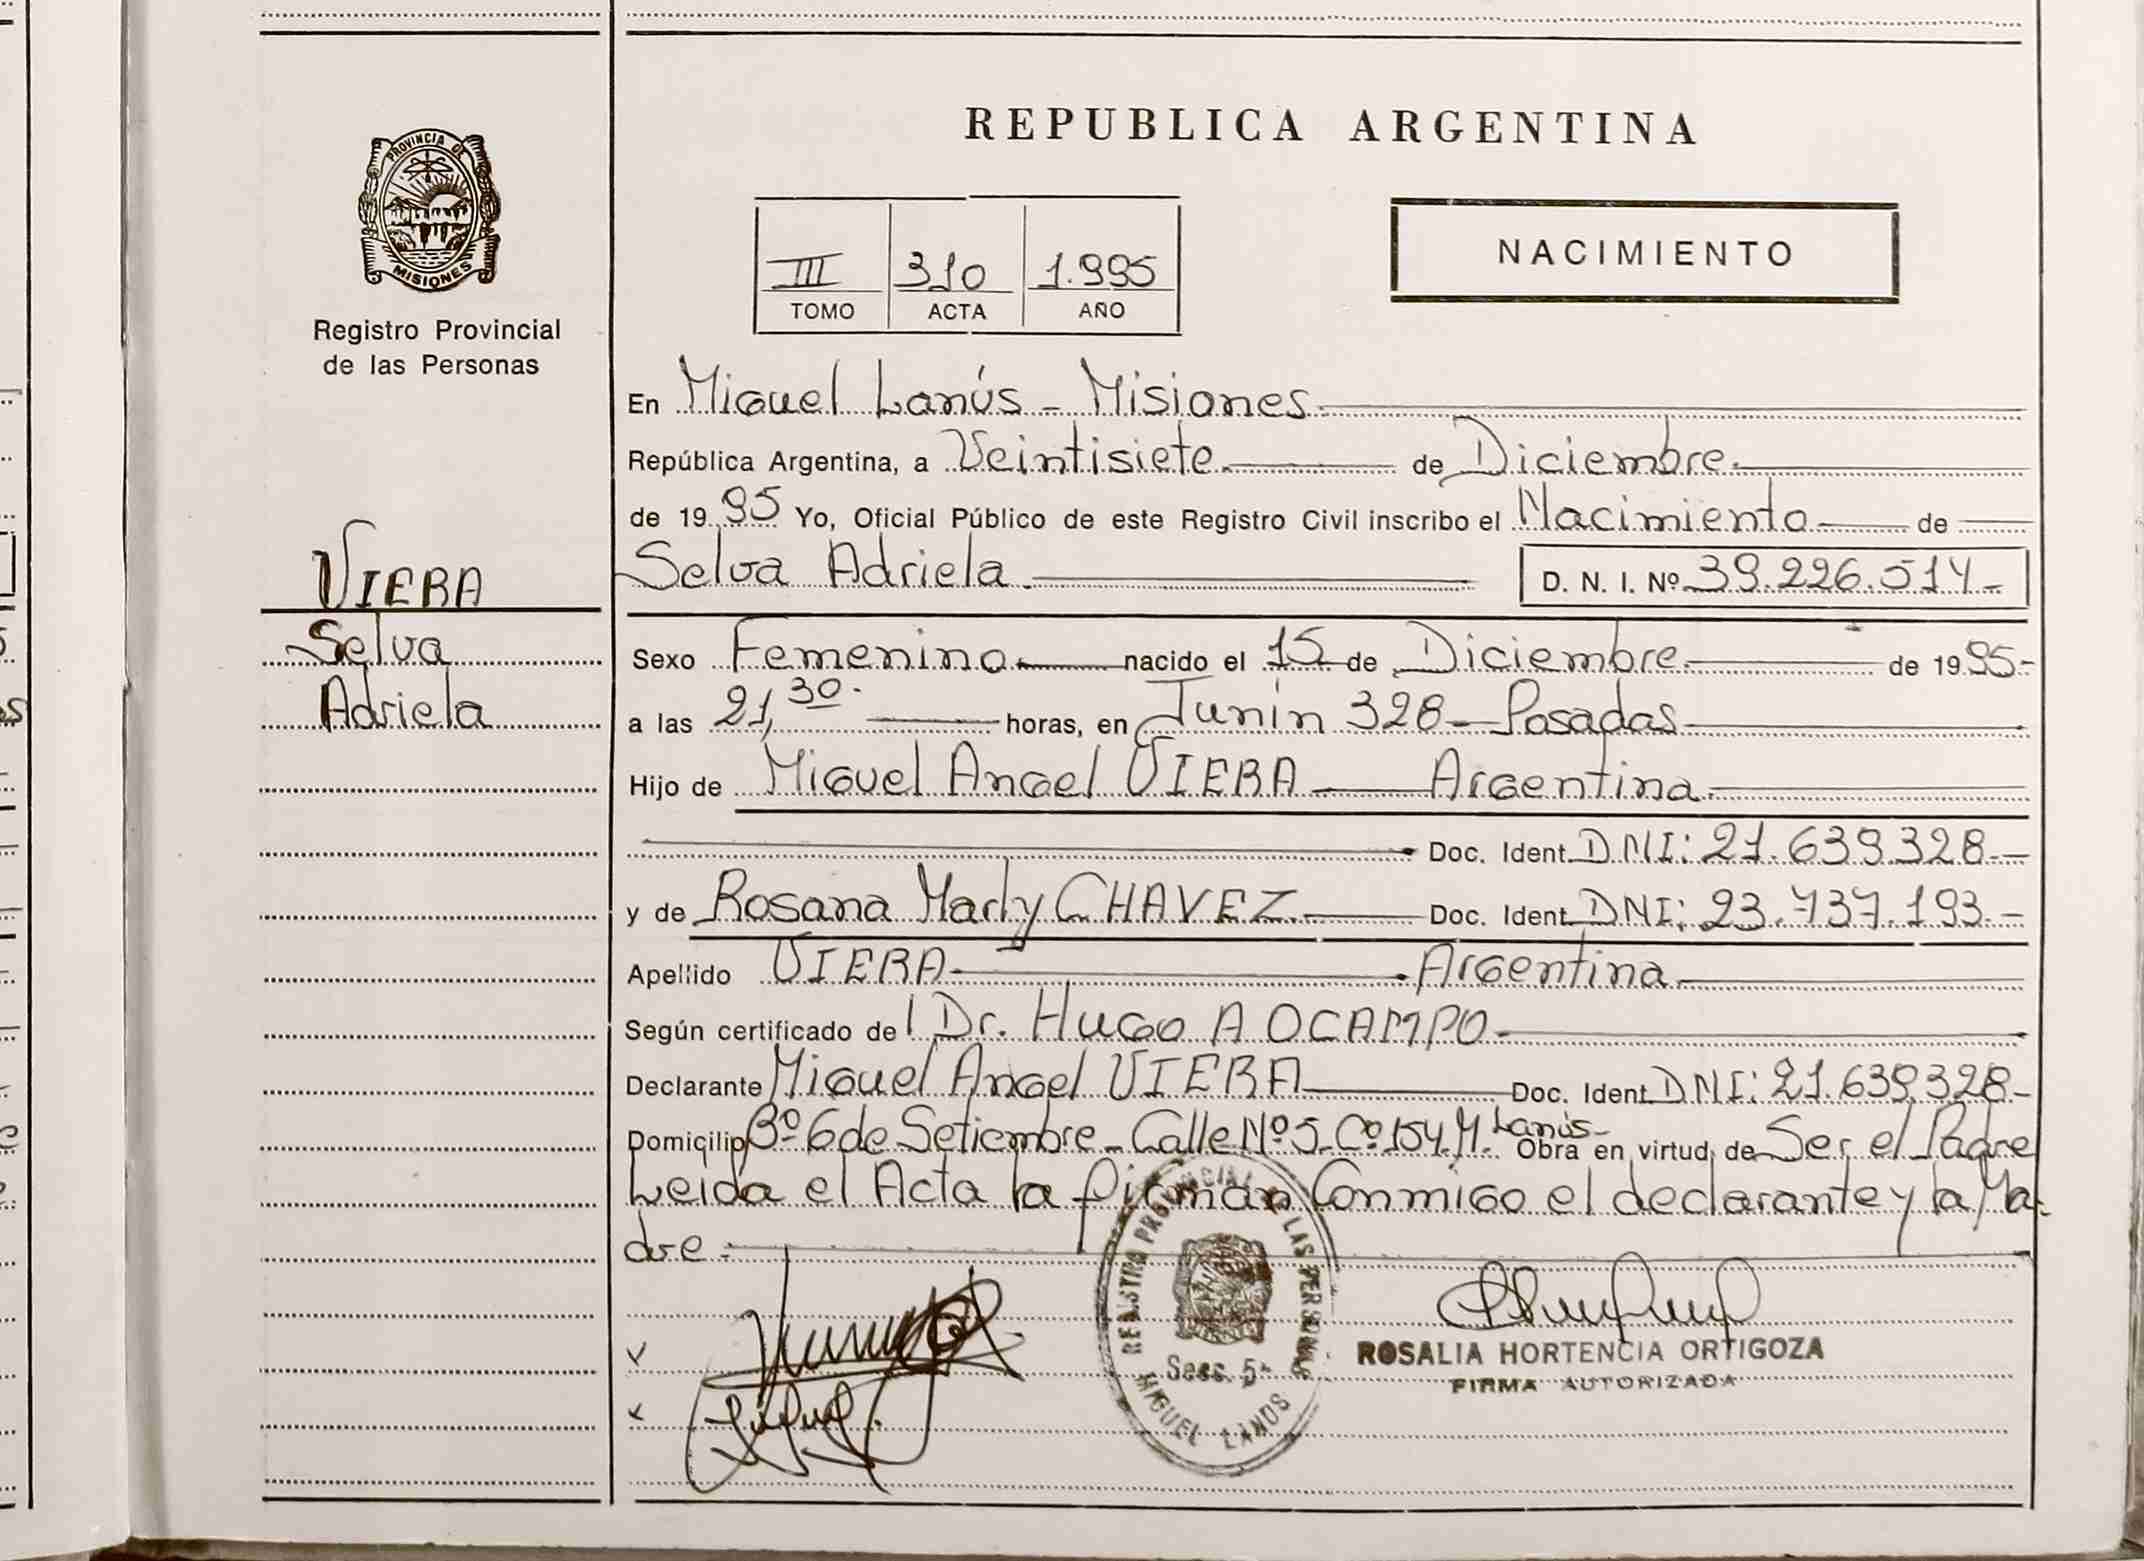 REPUBLICA ARGENTINA
PROVINCIA DE
MISIONES
Registro Provincial
de las Personas
NACIMIENTO
III 310 1.995
TOMO ACTA AÑO
En Miguel Lanús - Misiones
República Argentina, a Veintisiete de Diciembre
de 1995 Yo, Oficial Público de este Registro Civil inscribo el Nacimiento de
VIERA
Selva Adriela D. N. I. Nº 39.226.514-
Selva
Adriela
Sexo Femenino nacido el 15 de Diciembre de 1995-
a las 21,30- horas, en Junín 328 - Posadas
Hijo de Miguel Angel VIERA Argentina
Doc. Ident. DNI: 21.639.328-
y de Rosana Marly CHAVEZ Doc. Ident. DNI: 23.737.193.-
Apellido VIERA Argentina
Según certificado del Dr. Hugo A OCAMPO
Declarante Miguel Angel VIERA Doc. Ident. DNI: 21.639.328-
Domicilio Bº 6 de Setiembre - Calle Nº 5 Cº 154 M. Lanús- Obra en virtud de Ser el Padre
Leida el Acta la firman Conmigo el declarante y la Ma-
dre
REGISTRO PROVINCIAL DE LAS PERSONAS
Secc. 5ª
MIGUEL LANUS
ROSALIA HORTENCIA ORTIGOZA
FIRMA AUTORIZADA